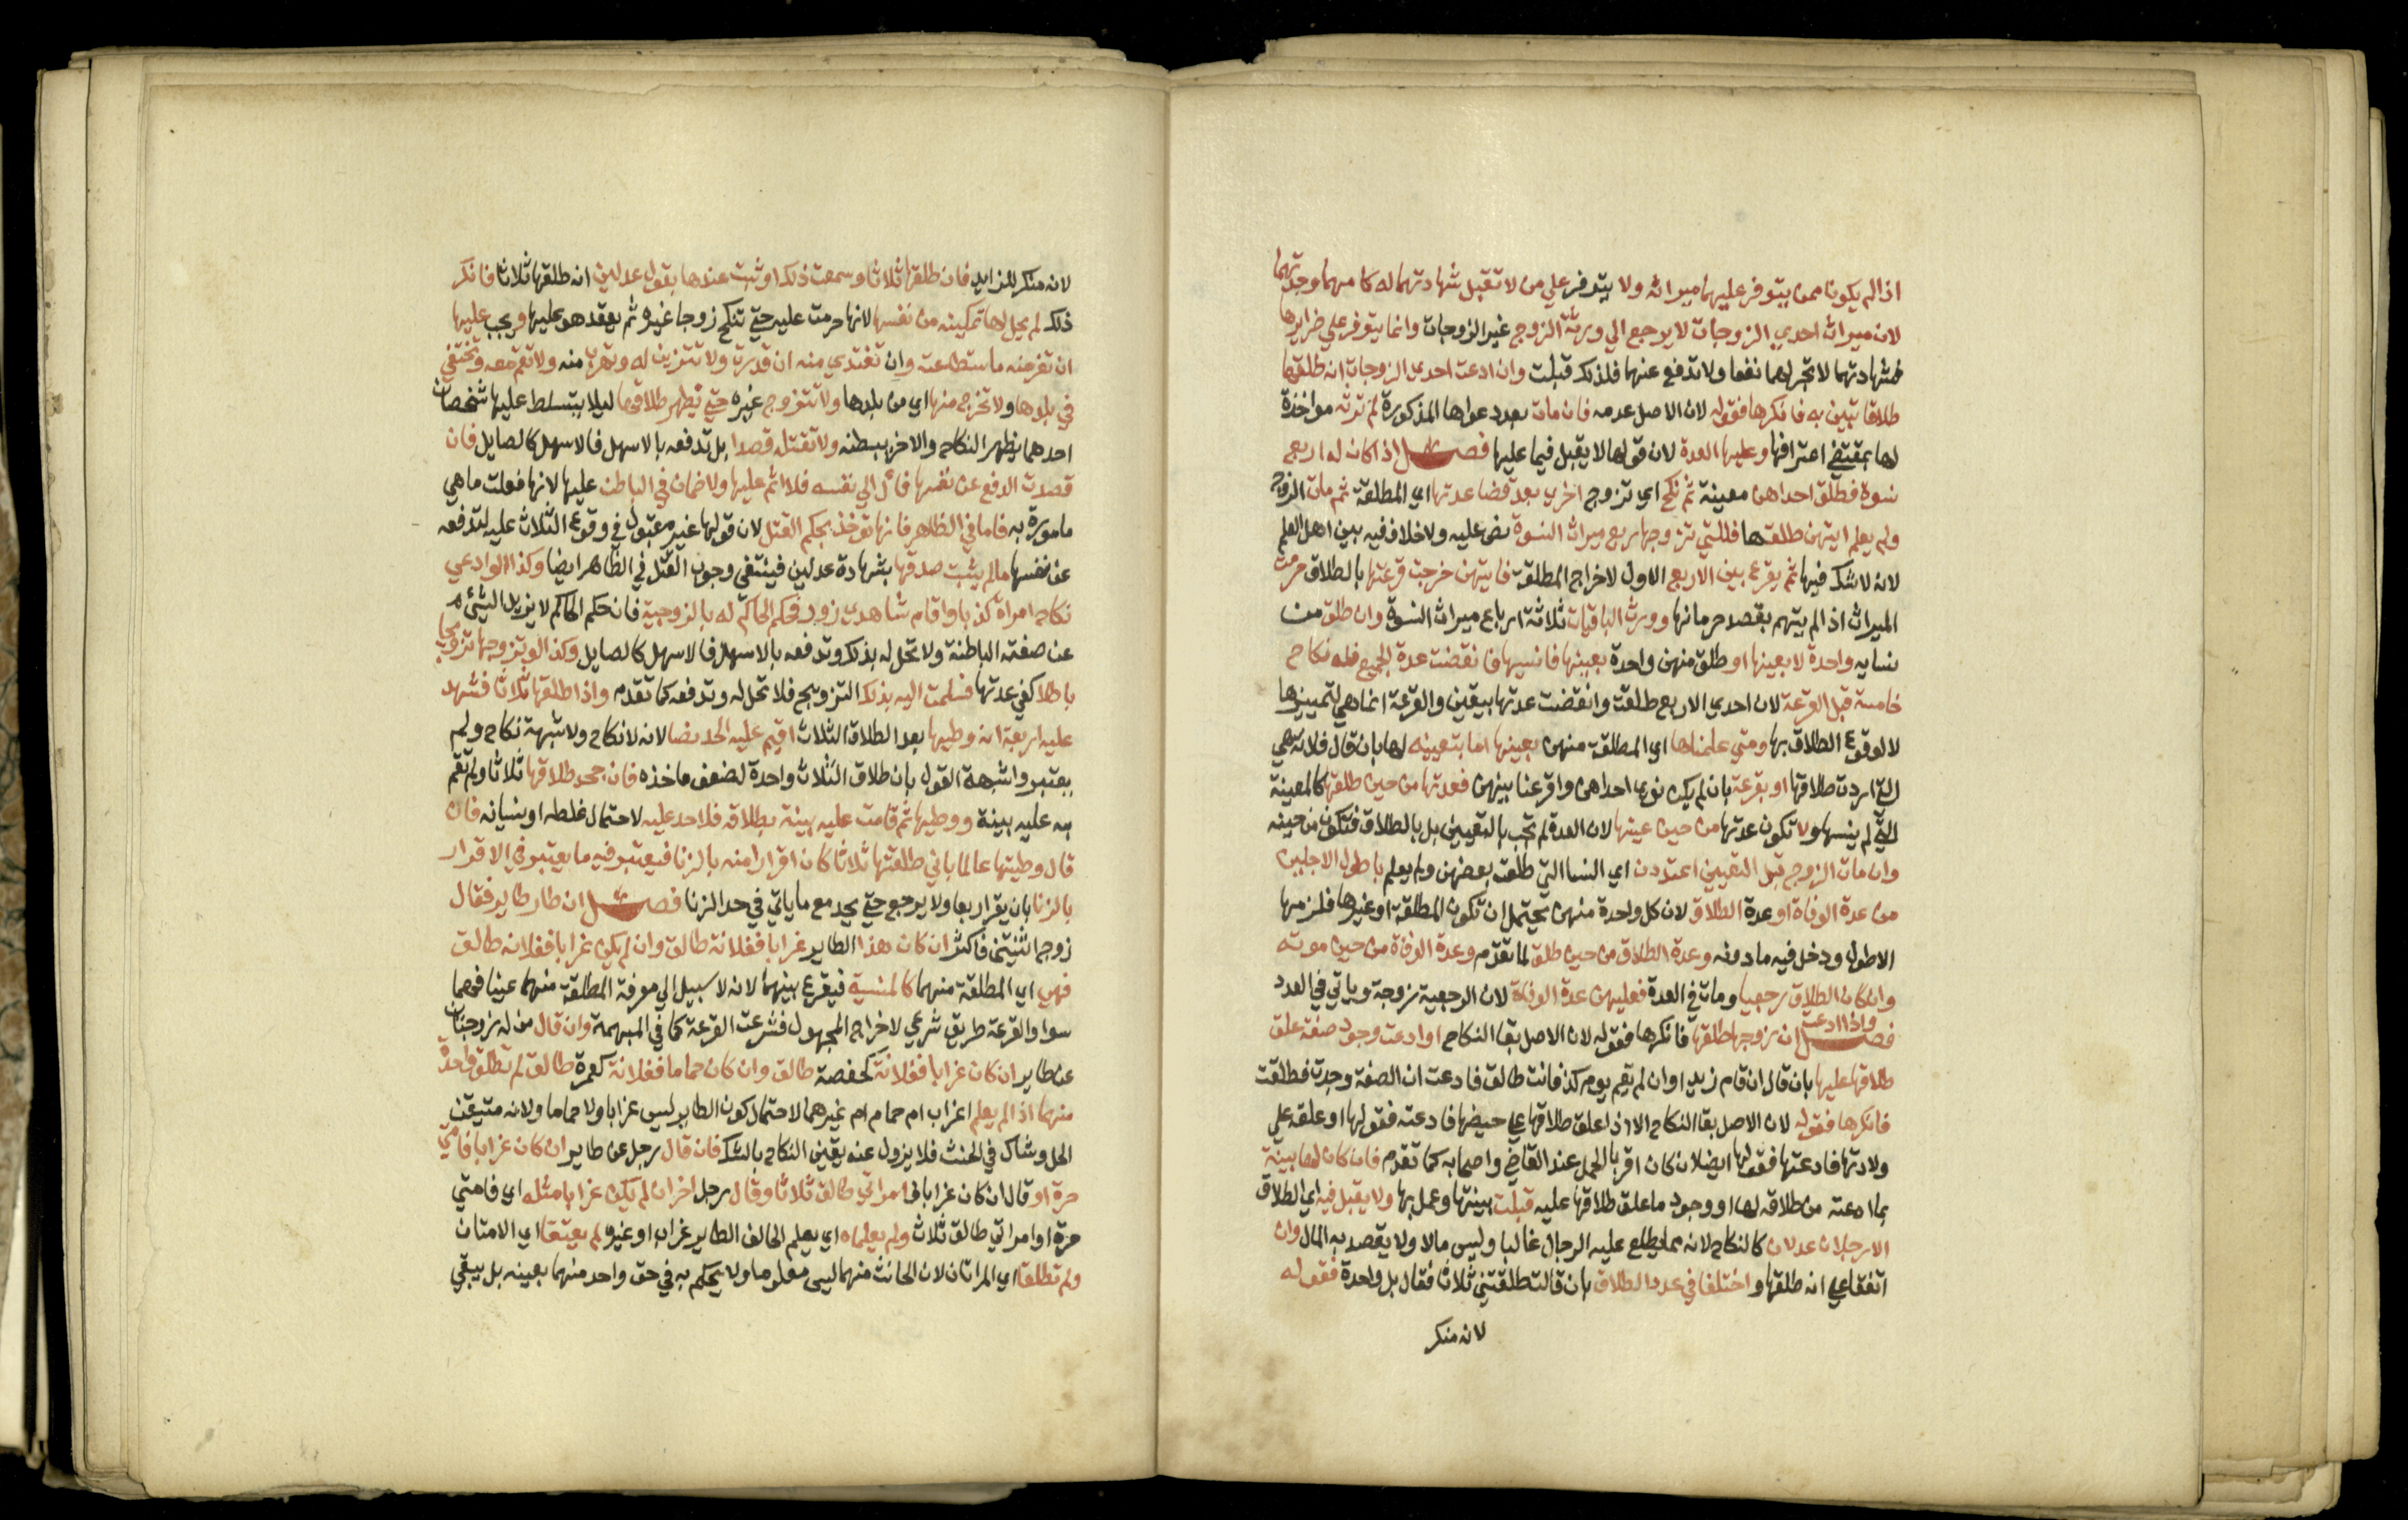 اذا لم يكونا ممن يتوفر عليهما ميراثه ولا يتوفر علي من لا تقبل شهادتهما له كامهما وجدتهما
لان ميراث احدي الزوجات لا يرجع الي ورثة الزوج غير الزوجات وانما يتوفر علي ضرايرها
فشهادتهما لا تجر لهما نفعا ولا تدفع عنهما فلذلك قبلت وان ادعت احدي الزوجات انه طلقها
طلاقا تبين به فانكرها فقوله لان الاصل عدمه فان مات بعد دعواها المذكورة لم ترثه مواخذة
لها بمقتضي اعترافها وعليها العدة لان قولها لا يقبل فيما عليها فصل اذا كان له اربع
نسوة فطلق احداهن معينة ثم نكح اي تزوج اخري بعد قضا عدتها اي المطلقة ثم مات الزوج
ولم يعلم ايتهن طلقها فللتي تزوجها ربع ميراث النسوة نص عليه ولا خلاف فيه بين اهل العلم
لانه لا شك فيها ثم يقرع بين الاربع الاول لاخراج المطلقة فايتهن خرجت قرعتها بالطلاق حرمت
الميراث اذا لم يتهم بقصد حرمانها وورث الباقيات ثلاثة ارباع ميراث النسوة وان طلق من
نسايه واحدة لا بعينها او طلق منهن واحدة بعينها فانسيها فانقضت عدة الجميع فله نكاح
خامسة قبل القرعة لان احدي الاربع طلقت وانقضت عدتها بيقين والقرعة انما هي لتمييزها
لا لوقوع الطلاق بها ومتي علمناها اي المطلقة منهن بعينها اما بتعيينه لها بان قال فلانة هي
التي اردت طلاقها او بقرعة بان لم يكن نوي احداهن واقرعنا بينهن فعدتها من حين طلقها كالمعينة
التي لم ينسها ولا تكون عدتها من حين عينها لان العدة لم تجب بالتعيين بل بالطلاق فتكون من حينه
وان مات الزوج قبل التعيين اعتددن اي النسا التي طلقت بعضهن ولم يعلم باطول الاجلين
من عدة الوفاة او عدة الطلاق لان كل واحدة منهن يحتمل ان تكون المطلقة او غيرها فلزمها
الاطول ودخل فيه ما دونه وعدة الطلاق من حين طلق لما تقدم وعدة الوفاة من حين موته
وان كان الطلاق رجعيا ومات في العدة فعليهن عدة الوفاة لان الرجعية زوجة وياتي في العدد
فصل واذا ادعت ان زوجها طلقها فانكرها فقوله لان الاصل بقا النكاح او ادعت وجود صفة علق
طلاقها عليها بان قال ان قام زيد او ان لم يقم يوم كذا فانت طالق فادعت ان الصفة وجدت فطلقت
فانكرها فقوله لان الاصل بقا النكاح الا اذا علق طلاقها علي حيضها فادعته فقولها او علقه علي
ولادتها فادعتها فقولها ايضا ان كان اقر بالحمل عند القاضي واصحابه كما تقدم فان كان لها بينة
بما ادعته من طلاقه لها او وجود ما علق طلاقها عليه قبلت بينتها وعمل بها ولا يقبل فيه اي الطلاق
الا رجلان عدلان كالنكاح لانه مما يطلع عليه الرجال غالبا وليس مالا ولا يقصد به المال وان
اتفقا علي انه طلقها واختلفا في عدد الطلاق بان قالت طلقتني ثلاثا فقال بل واحدة فقوله
لانه منكر
لانه منكر للزايد فان طلقها ثلاثا وسمعت ذلك او ثبت عندها بقول عدلين انه طلقها ثلاثا فانكر
ذلك لم يحل لها تمكينه من نفسها لانها حرمت عليه حتي تنكح زوجا غيره ثم يعقد هو عليها ويجب عليها
ان تفر منه ما استطاعت وان تفتدي منه ان قدرت ولا تتزين له وتهرب منه ولا تقم معه وتختفي
في بلدها ولا تخرج منها اي من بلدها ولا تتزوج غيره حتي يظهر طلاقها ليلا يتسلط عليها شخصان
احدهما يظهر النكاح والاخر يبطنه ولا تقتله قصدا بل تدفعه بالاسهل فالاسهل كالصايل فان
قصدت الدفع عن نفسها فآل الي نفسه فلا اثم عليها ولا ضمان في الباطن عليها لانها فعلت ما هي
مامورة به فاما في الظاهر فانها توخذ بحكم القتل لان قولها غير مقبول في وقوع الثلاث عليه لتدفعه
عن نفسها ما لم يثبت صدقها بشهادة عدلين فينتفي وجوب القتل في الظاهر ايضا وكذا لو ادعي
نكاح امراة كذبا واقام شاهدي زور فحكم الحاكم له بالزوجية فان حكم الحاكم لا يزيل الشيء
عن صفته الباطنة ولا تحل له بذلك وتدفعه بالاسهل فالاسهل كالصايل وكذا لو تزوجها تزويجا
باطلا كفي عدتها فسلمت اليه بذلك التزويج فلا تحل له وتدفعه كما تقدم واذا طلقها ثلاثا فشهد
عليه اربعة انه وطيها بعد الطلاق الثلاث اقيم عليه الحد نصا لانه لا نكاح ولا شبهة نكاح ولم
يعتبروا شبهة القول بان طلاق الثلاث واحدة لضعف ماخذه فان جحد طلاقها ثلاثا ولم تقم
به عليه بينة ووطيها ثم قامت عليه بينة بطلاقه فلا حد عليه لاحتمال غلطه او نسيانه فان
قال وطيتها عالما باني طلقتها ثلاثا كان اقرارا منه بالزنا فيعتبر فيه ما يعتبر في الاقرار
بالزنا بان يقر اربعا ولا يرجع حتي يحد مع ما ياتي في حد الزنا فصل ان طار طاير فقال
زوج اثنتين فاكثر ان كان هذا الطاير غرابا ففلانة طالق وان لم يكن غرابا ففلانة طالق
فهي اي المطلقة منهما كالمنسية فيقرع بينهما لانه لا سبيل الي معرفة المطلقة منهما عينا فهما
سوا والقرعة طريق شرعي لاخراج المجهول فشرعت القرعة كما في المبهمة وان قال من له زوجتان
عن طاير ان كان غرابا ففلانة كحفصة طالق وان كان حماما ففلانة كعمرة طالق لم تطلق واحدة
منهما اذا لم يعلم اغراب ام حمام ام غيرهما لاحتمال كون الطاير ليس غرابا ولا حماما ولانه متيقن
الحل وشاك في الحنث فلا يزول عنه يقين النكاح بالشك فان قال رجل عن طاير ان كان غرابا فامتي
حرة او قال ان كان غرابا فامراتي طالق ثلاثا وقال رجل اخر ان لم يكن غرابا مثله اي فامتي
حرة او امراتي طالق ثلاث ولم يعلماه اي يعلم الحالف الطاير غراب او غيره لم يعتقا اي الامتان
ولم تطلقا اي المراتان لان الحانث منهما ليس معلوما ولا يحكم به في حق واحد منهما بعينه بل يبقي